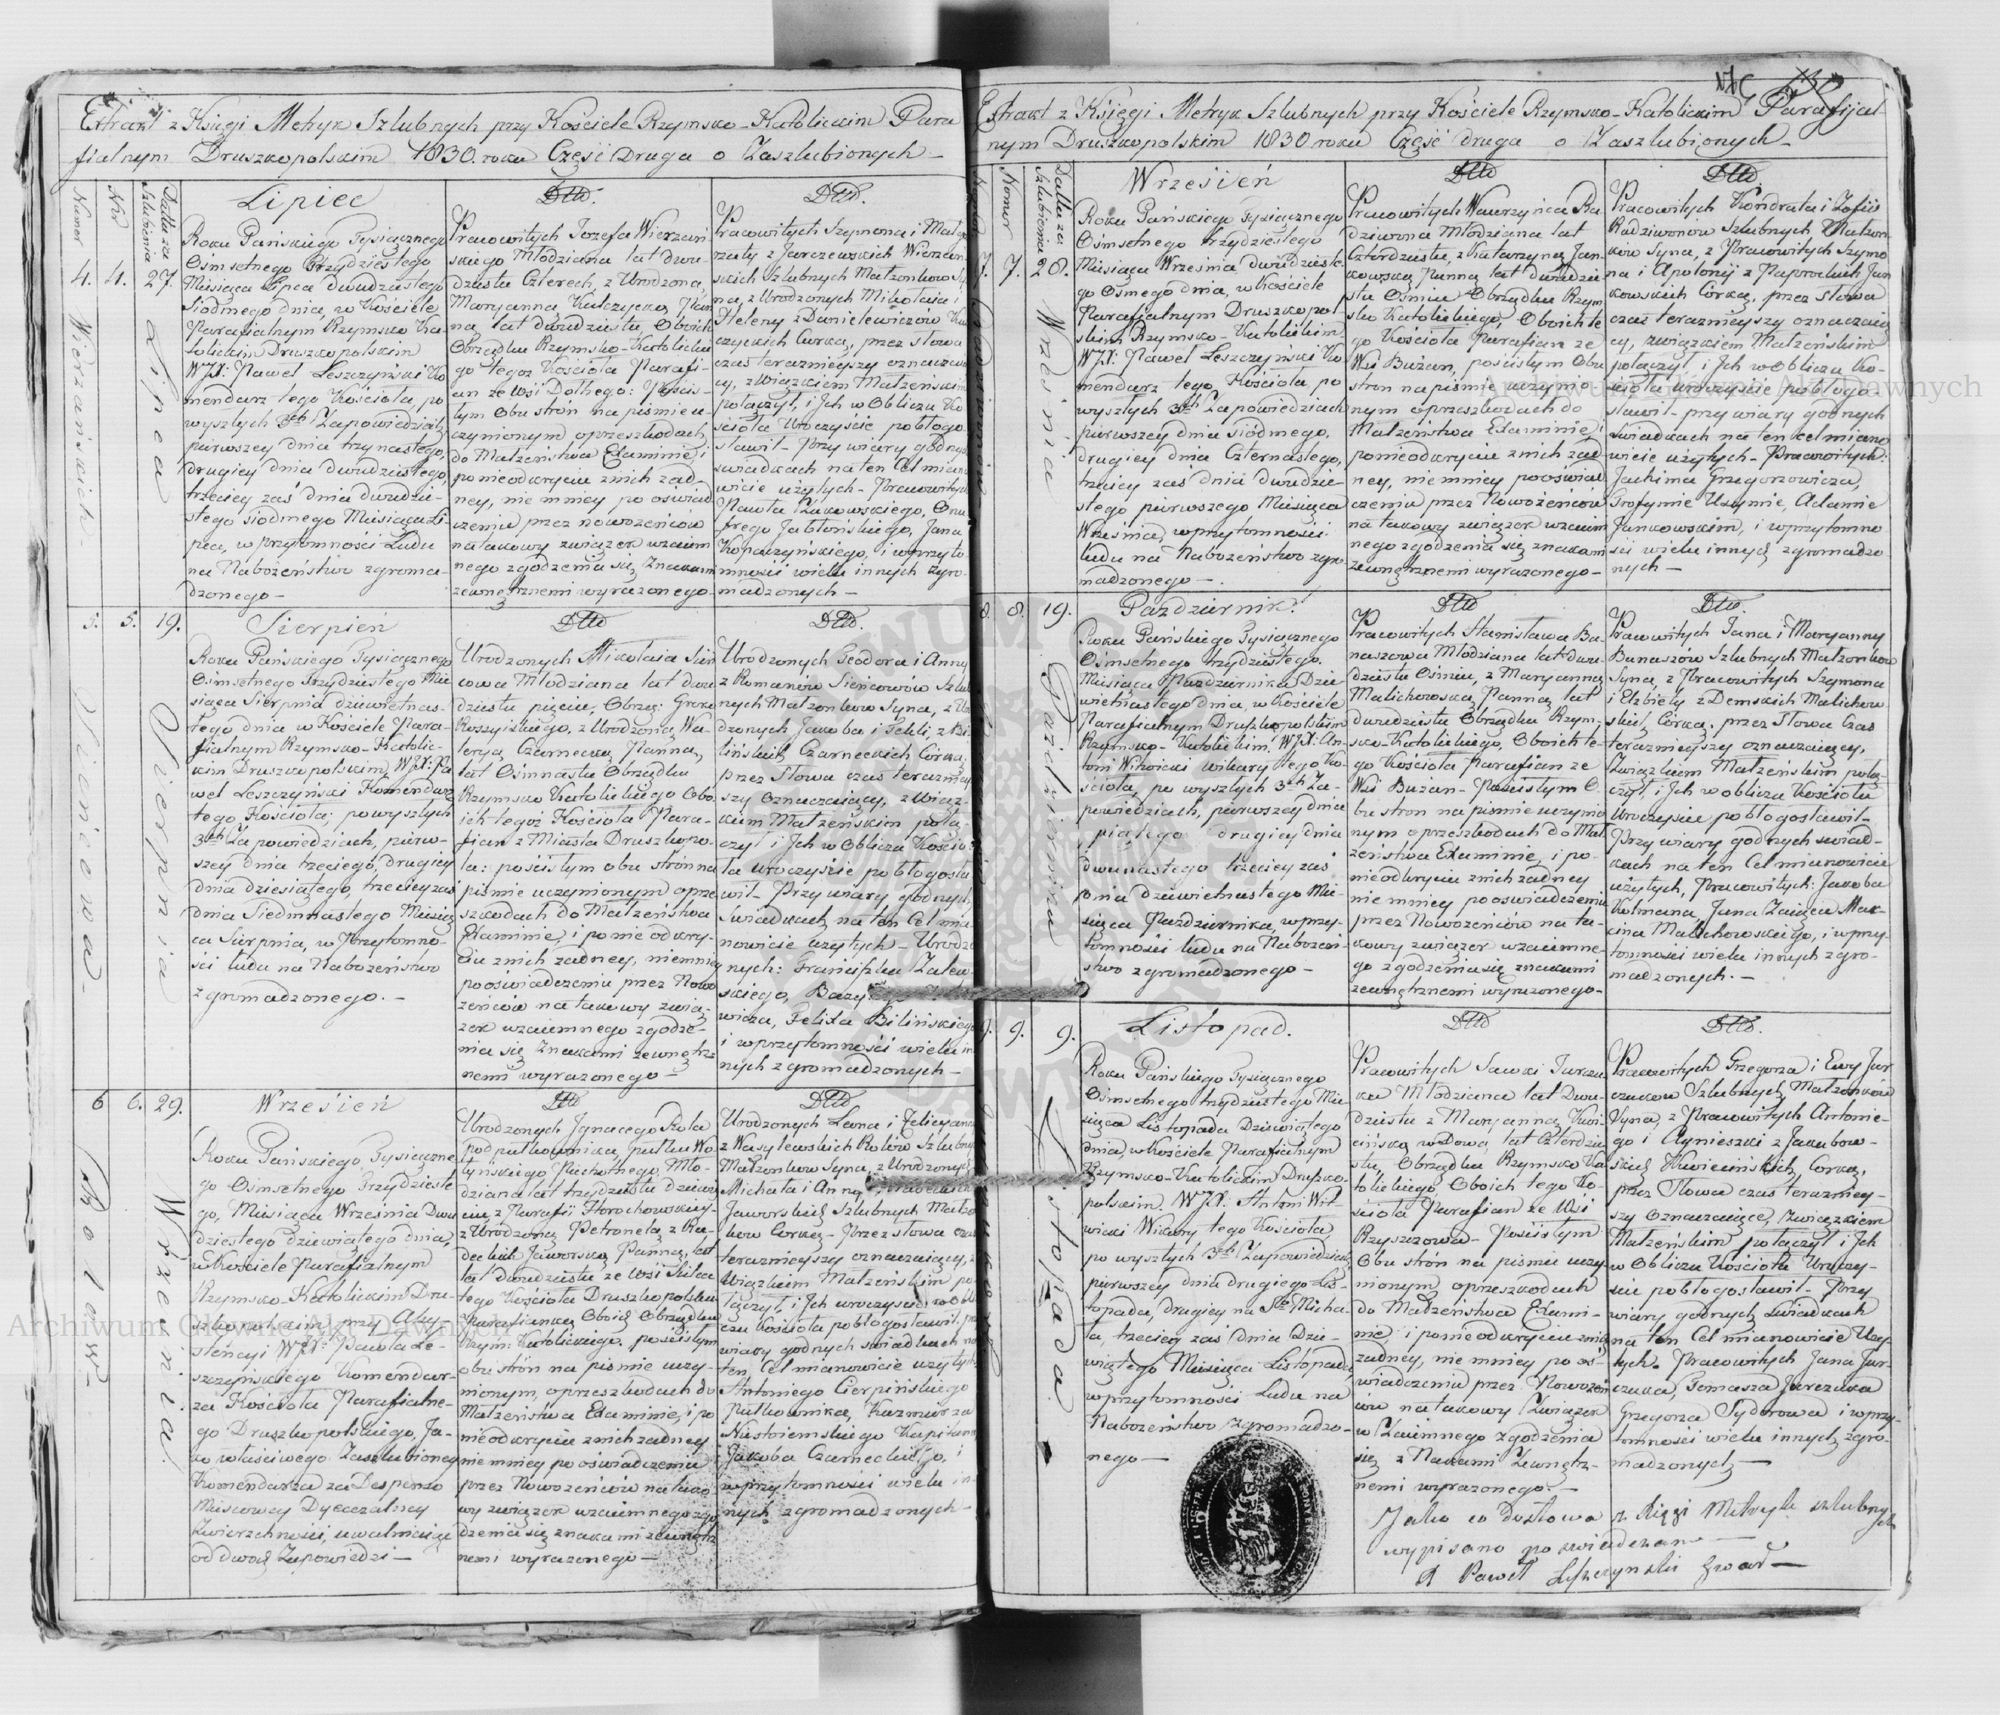 Extrakt z Księgi Metryk Szlubnych przy Kościele Rzymsko-Katolickim Para
fialnym Druszkopolskim 1830. roku Część Druga o Zaszlubionych
Numer
Nr
Datta za
Szlubienia
4. 4. 27. Lipca
Wierzańskich
Lipiec
Roku Pańskiego Tysiącznego
Ośmsetnego Trzydziestego
Miesiąca Lipca dwudziestego
Siódmego dnia, w Kościele
Parafialnym Rzymsko Ka
tolickim Druszkopolskim
WJX: Paweł Leszczyński Ko
mendarz tego Kościoła, po
wyszłych 3ch Zapowiedziach,
pierwszey dnia trzynastego,
drugiey dnia dwudziestego,
trzeciey zaś dnia dwudzie-
stego siodmego Miesiąca Li
pca, w przytomności Ludu
na Nabożeństwo zgroma-
dzonego —
Dtto.
Pracowitych Jozefa Wierzań
skiego Młodziana lat dwu-
dziestu Czterech, z Urodzoną
Maryanną Kulczycką, Pan
ną, lat dwudziestu, Oboich
Obrządku Rzymsko-Katolickie
go tegoż Kościoła Parafi-
an ze Wsi Dołhego: po ścis-
łym Obu strón na piśmie u-
czynionym o przeszkodach
do Małżeństwa Examinie, i
po nieodkryciu z nich żad-
ney, nie mniey po oświad
czeniu przez nowożeńców
na takowy związek wzaiem
nego zgodzenia się, Znakami
zewnętrznemi wyrażonego
Dtto.
Pracowitych Szymona i Mał
rzaty z Jarczewskich Wierzań
skich Szlubnych Małżonkow Sy
na, z Urodzonych Mikołaia i
Heleny z Danielewiczów Kul
czyckich Curką, przez słowa
czas teraznieyszy oznaczaią
cy, związkiem Małżeńskim
połączył, i Ich w Obliczu Ko
ścioła Uroczyście pobłogo
sławił - Przy wiary godnych
swiadkach na ten Cel miano
wicie użytych - Pracowitych
Pawła Żukowskiego, Onu
frego Jabłońskiego, Jana
Kopaczyńskiego, i w przyto
mności wielu innych zgro-
madzonych —
5. 5. 19. Sierpnia
Sieńcowa
Sierpień
Roku Pańskiego Tysiącznego
Ośmsetnego Trzydziestego Mie
siąca Sierpnia dziewiętnas-
tego dnia w Kościele Para-
fialnym Rzymsko-Katolic-
kim Druszkopolskim, WJX: Pa
weł Leszczyński Komendarz
tego Kościoła, po wyszłych
3ch Zapowiedziach, pierw-
szey dnia trzeciego, drugiey
dnia dziesiątego, trzeciey zaś
dnia Siedmnastego Miesią
ca Sierpnia, w Przytomno-
ści ludu na Nabożeństwo
zgromadzonego. —
Dtto
Urodzonych Mikołaia Sień
cowa Młodziana lat dwu
dziestu pięciu, Obrzą: Greko
Rossyiskiego, z Urodzoną Wa
leryą Czarnecką, Panną,
lat Ośmnastu Obrządku
Rzymsko Katolickiego Obo
ich tegoż Kościoła Para-
fian z Miasta Druszkopo-
la: po ścisłym obu strón na
piśmie uczynionym o prze
szkodach do Małżeństwa
Examinie, i po nie odkry-
ciu z nich żadney, niemniey
po oświadczeniu przez Nowo
żeńców na takowy zwią-
zek wzaiemnego zgodze-
nia się, Znakami zewnętrz
nemi wyrażonego —
Dtto.
Urodzonych Teodora i Anny
z Romanów Sieńcowów Szlub
nych Małżonkow Syna, z Uro
dzonych Jakoba i Tekli, z Bi
lińskich Czarneckich Córką,
przez Słowa czas teraźniey
szy Oznaczaiący, związ-
kiem Małżeńskim połą-
czył, i Ich w Obliczu Kościo-
ła uroczyście pobłogosła
wił - Przy wiary godnych
Świadkach na ten Cel mia-
nowicie użytych - Urodzo
nych: Franciszka Zalew
skiego,
wicza, Felixa Bilińskiego
i w przytomności wielu in
nych zgromadzonych —
6 6. 29. Września
Rolow
Wrzesień
Roku Pańskiego Tysiączne
go Ośmsetnego Trzydzieste
go, Miesiąca Września Dwu
dziestego dziewiątego dnia,
w Kościele Parafialnym
Rzymsko-Katolickim Dru-
szkopolskim, przy Assy-
stencyi WJX: Pawła Le-
szczyńskiego Komendar-
za Kościoła Parafialne-
go Druszkopolskiego, Ja-
ko właściwego Zaszlubioney
Komendarza za Despenso
Miescowey Dyecezalney
Zwierzchności, uwalniaiące
od dwoch Zapowiedzi —
Dtto
Urodzonych Ignacego Rola
podpułkownika, pułku Wo
łyńskiego Piechotnego, Mło-
dziana lat trzydziestu dziewię
ciu z Parafii Horochowskiey,
z Urodzoną Petronelą z Ra-
deckich Jaworską, Panną, lat
lat dwudziestu ze Wsi
tego Kościoła Druszkopolskiego
Parafianką Oboich Obrządku
Rzym: Katolickiego. po ścisłym
obu strón na piśmie uczy-
nionym, o przeszkodach do
Małżeństwa Examinie, i po
nieodkryciu z nich żadney
niemniey po oświadczeniu
przez Nowożeńców na tako
wy związek wzaiemnego zgo
dzenia się, znakami zewnętrz
nemi wyrażonego —
Dtto
Urodzonych Leona i Felicyanny
z Wasylewskich Rolów Szlubnych
Małżonkow Syna, z Urodzonych
Michała i Anny z Radeckich
Jaworskich Szlubnych Małżon
kow Corką - Przez słowa czas
teraznieyszy oznaczaiący, z
wiązkiem Małżeńskim po
łączył, i Ich uroczyście w Obli
czu Kościoła pobłogosławił. przy
wiary godnych swiadkach na
ten Cel mianowicie użytych
Antoniego Cierpińskiego
pułkownika, Kazmierza
Kapitana
Jakoba Czarneckiego, i
w przytomności wielu in-
nych zgromadzonych —
176
Extrakt z Księgi Metryk Szlubnych przy Kościele Rzymsko-Katolickim Parafijal-
nym Druszkopolskim 1830 roku Część druga o Zaszlubionych
Nomer
Datta za
Szlubienia
7. 7. 28. Września
Radziwonów
Wrzesień
Roku Pańskiego Tysiącznego
Ośmsetnego trzydziestego
Miesiąca Września dwudzieste
go Osmego dnia, w Kościele
Parafialnym Druszkopol
skim Rzymsko-Katolickim
WJX: Paweł Leszczyński Ko
mendarz tego Kościoła po
wyszłych 3ch Zapowiedziach
pierwszey dnia siódmego,
drugiey dnia Czternastego,
trzeciey zaś dnia dwudzie-
stego pierwszego Miesiąca
Września, w przytomności
ludu na Nabożeństwo zgro-
madzonego —
Dtto
Pracowitych Wawrzyńca Ra
dziwona Młodziana lat
Czterdziestu, z Katarzyną Jan
kowską Panną lat dwudzie
stu Osmiu Obrządku Rzym
sko Katolickiego, Oboich te
go Kościoła Parafian ze
Wsi Bużan, po ścisłym Obu
stron na piśmie uczynio-
nym o przeszkodach do
Małżeństwa Examinie, i
po nieodkryciu z nich żad
ney, nie mniey po oświad
czeniu przez Nowożeńców
na takowy związek wzaiem
nego zgodzenia się znakami
zewnętrznemi wyrażonego —
Dtto
Pracowitych Kondrata i Zofii
Radziwonow Szlubnych Małżon
ków Syna, z Pracowitych Szymo
na i Apolonij z Paprockich Jan
kowskich Córką, przez słowa
czas teraznieyszy oznaczaią
cy, związkiem Małżeńskim
połączył, i Ich w Obliczu Ko-
ścioła uroczyście pobłogo-
sławił - przy wiary godnych
Świadkach na ten cel miano
wicie użytych - Pracowitych:
Jachima Grzegorzowicza,
Trofyma Adamie
Jankowskim, i w przytomno
ści wielu innych zgromadzo-
nych —
8. 8. 19. Pazdziernika
Październik
Roku Pańskiego Tysiącznego
Ośmsetnego trzydziestego.
Miesiąca Pazdziernika Dzie
więtnastego dnia, w Kościele
Parafialnym Druszkopolskim
Rzymsko-Katolickim WJX: An
toni Witwicki Wikary tego Ko-
ścioła, po wyszłych 3ch Za-
powiedziach, pierwszey dnia
piątego drugiey dnia
dwunastego trzeciey zaś
dnia dziewiętnastego Mie-
siąca Pazdziernika, w przy-
tomności ludu na Nabożeń-
stwo zgromadzonego —
Dtto
Pracowitych Stanisława Ba-
naszowa Młodziana lat dwu-
dziestu Osmiu, z Maryanną
Malichowską Panną lat
dwudziestu Obrządku Rzym-
sko-Katolickiego, Oboich te-
go Kościoła Parafian ze
Wsi Bużan - Po ścisłym O-
bu stron na piśmie uczynio
nym o przeszkodach do Mał
żeństwa Examinie, i po-
nieodkryciu z nich żadney
nie mniey po oświadczeniu
przez Nowożeńców na ta-
kowy związek wzaiemne-
go zgodzenia się znakami
zewnętrznemi wyrażonego -
Dtto.
Pracowitych Jana i Maryanny
Banaszów Szlubnych Małżonkow
Syna, z Pracowitych Szymona
i Elżbiety z Demskich Malichow
skich Córką, przez Słowa Czas
teraznieyszy oznaczaiący,
Związkiem Małżeńskim połą-
czył, i Ich w obliczu Kościoła
Uroczyście pobłogosławił-
Przy wiary godnych swiad-
kach na ten Cel mianowicie
użytych, Pracowitych: Jakoba
Kolmana, Jana Zaiąca Mar-
cina Malichowskiego, i w przy-
tomności wielu innych zgro-
madzonych. —
9. 9. 9. Listopada
Listopad.
Roku Pańskiego Tysiącznego
Ośmsetnego trzydziestego Mie
siąca Listopada Dziewiątego
dnia, w Kościele Parafialnym
Rzymsko-Katolickim Druszko-
polskim. WJX: Antoni Wit
wicki Wikary tego Kościoła
po wyszłych 3ch Zapowiedziach
pierwszey dnia drugiego Lis-
topada, drugiey na Sty Micha-
ła, trzeciey zaś dnia Dzie-
wiątego Miesiąca Listopada,
w przytomności Ludu na
Nabożeństwo zgromadzo-
nego —
Dtto
Pracowitych Sawki Jurczu
ka Młodziana lat Dwu-
dziestu z Maryanną Kwie
cińską wdową, lat Czterdzie
stu, Obrządku Rzymsko Ka
tolickiego, Oboich tego Ko-
ścioła Parafian ze Wsi
Ryszczowa - Po ścisłym
Obu strón na piśmie uczy
nionym, o przeszkodach
do Małżeństwa Exami-
nie, i po nieodkryciu z nich
żadney, nie mniey po oś-
wiadczeniu przez Nowożeń
ców na takowy Związek
wzaiemnego zgodzenia
się, z Nakami Zewnętrz-
nemi wyrażonego. —
Dtto.
Pracowitych Grzegorza i Ewy Jur
czukow Szlubnych Małżonków
Syna, z Pracowitych Antonie-
go i Agnieszki z Jakubow-
skich Kwiecińskich Corką,
przez Słowa czas teraźniey-
szy Oznaczaiące, Związkiem
Małżeńskim połączył i Ich
w Obliczu Kościoła Uroczy-
ście pobłogosławił - Przy
wiary godnych Świadkach
na ten Cel mianowicie Uży
tych. Pracowitych Jana Jur-
czuka, Tomasza Jurczuka
Grzegorza Sydorowa i w przy-
tomności wielu innych zgro-
madzonych —
Jako co Dosłowa z Xięgi Metryk szlubnych
wypisano poswiadczam —
X Paweł Leszczyński
Archiwum Główne Akt Dawnych